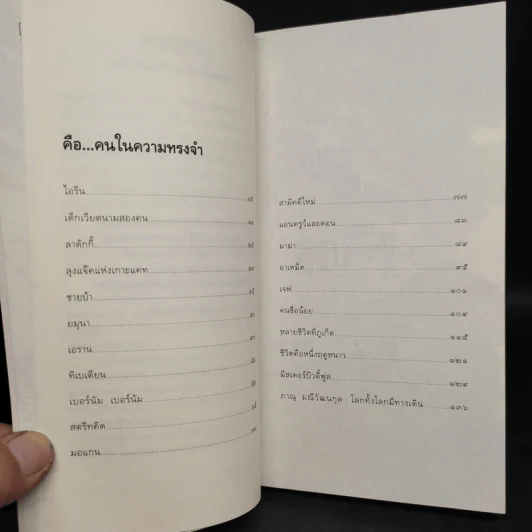 คือ...คนในความทรงจำ
ไอรีน
เด็กเวียตนามสองคน
ลาดักกี้
ลุงแจ๊คแห่งเกาะแคท
ชายบ้า
ยมุนา
เอราน
ทิเบเตียน
เบอร์นัม เบอร์นัม
สตรีทคิด
มอแกน
สามัคคีใหม่ ๗๗
แอนดรูว์และคอน ๘๓
มาม่า ๘๙
อาเหม็ด ๙๕
เจฟ ๑๐๑
คนชื่อน้อย ๑๐๙
หลายชีวิตที่ภูเก็ต ๑๑๕
ชีวิตคือหนึ่งฤดูหนาว ๑๒๑
มิสเตอร์บิวตี้ฟูล ๑๒๙
ภาณุ มณีวัฒนกุล : โลกทั้งโลกมีทางเดิน ๑๓๖